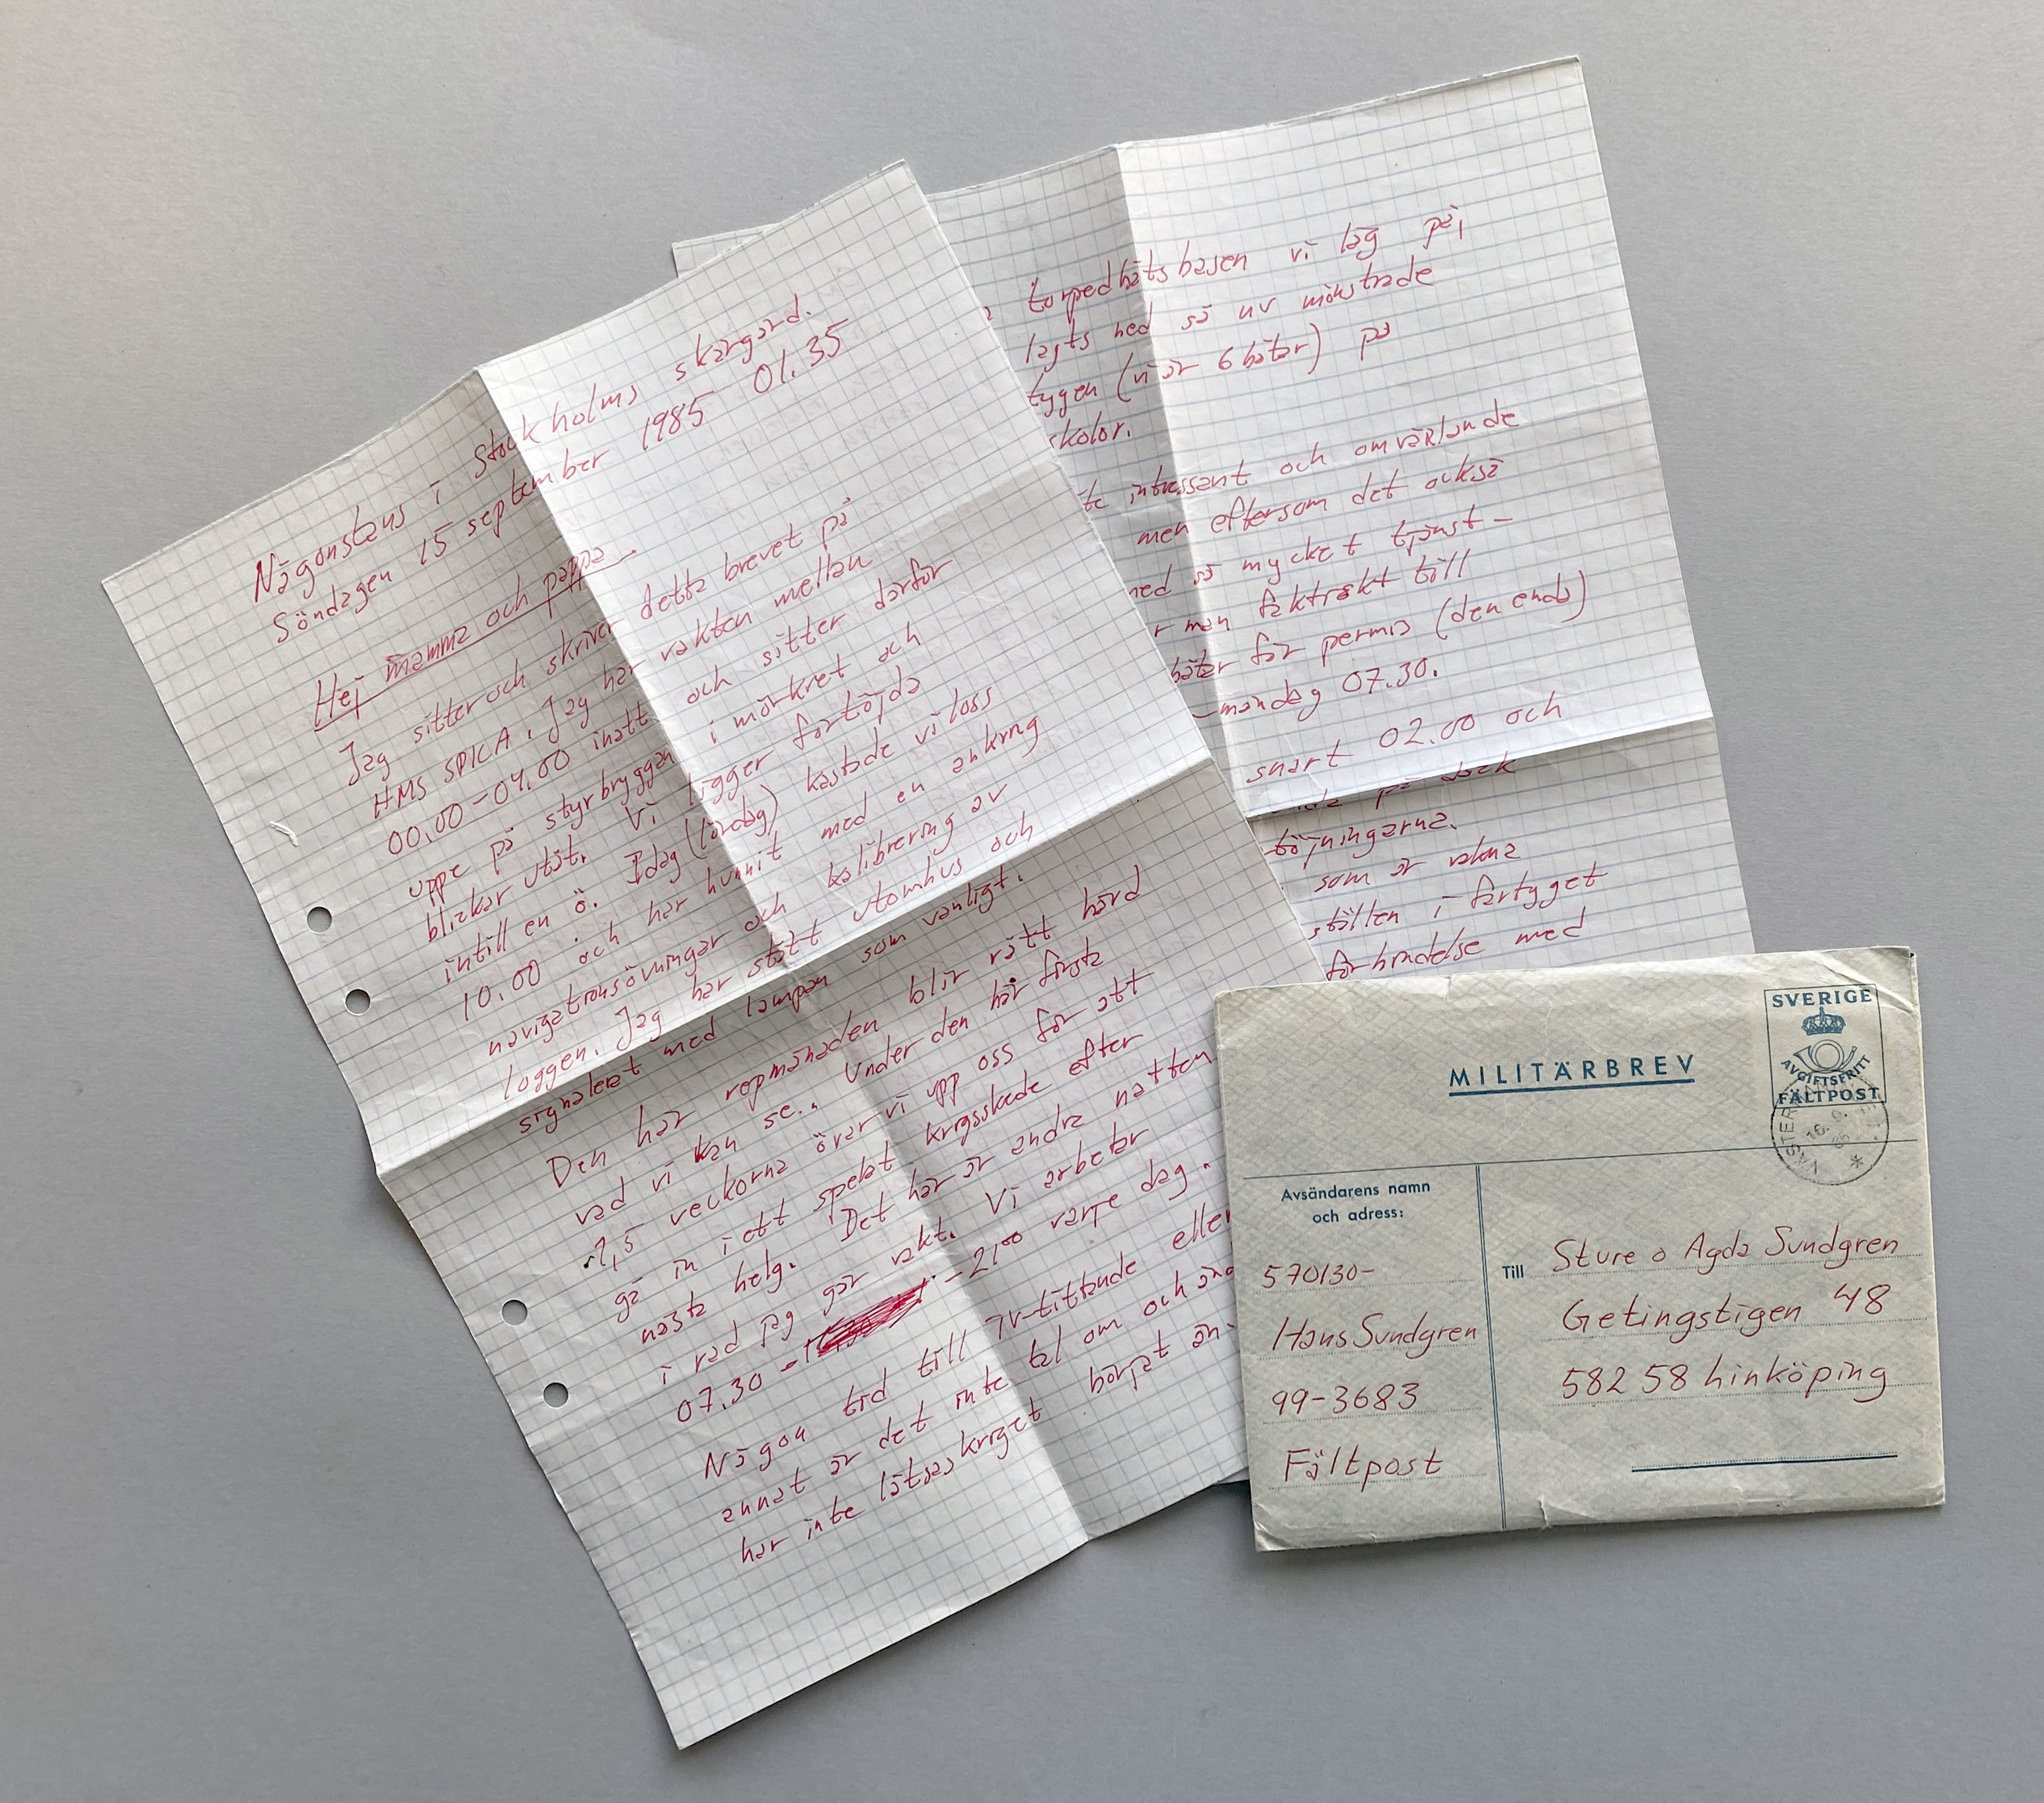 Någonstans i Stockholms skärgård.
Söndagen 15 september 1985 01.35
Hej mamma och pappa
Jag sitter och skriver detta brevet på
HMS SPICA. Jag har vakten mellan
00.00-04.00 inatt och sitter därför
uppe på styrbryggan i mörkret och
blickar utåt. Vi ligger förtöjda
intill en ö. Idag (lördag) kastade vi loss
10.00 och har hunnit med en ankring
navigationsövningar och kalibrering av
loggen. Jag har stått utomhus och
signalerat med lampan som vanligt.
Den här repmånaden blir rätt hård
vad vi kan se.. Under den här första
1,5 veckorna övar vi upp oss för att
gå in i ett spelat krigsskede efter
nästa helg. Det här är andra natten
i rad jag går vakt. Vi arbetar
07.30 - 21⁰⁰ varje dag.
Någon tid till TV-tittande eller
annat är det inte tal om och ändå
har inte låtsaskriget börjat än.
torpedbåtsbasen vi låg på,
lagts ned så nu mönstrade
tygen (vi är 6 båtar) på
skolor.
te intressant och omväxlande
men eftersom det också
med så mycket tjänst-
r man faktiskt till
båtar för permis (den enda)
-måndag 07.30.
snart 02.00 och
på däck
töjningarna.
som är vakna
ställen i fartyget
förbindelse med
MILITÄRBREV
SVERIGE
AVGIFTSFRITT
FÄLTPOST
Avsändarens namn
och adress:
570130-
Hans Sundgren
99-3683
Fältpost
Till Sture o Agda Sundgren
Getingstigen 48
582 58 Linköping